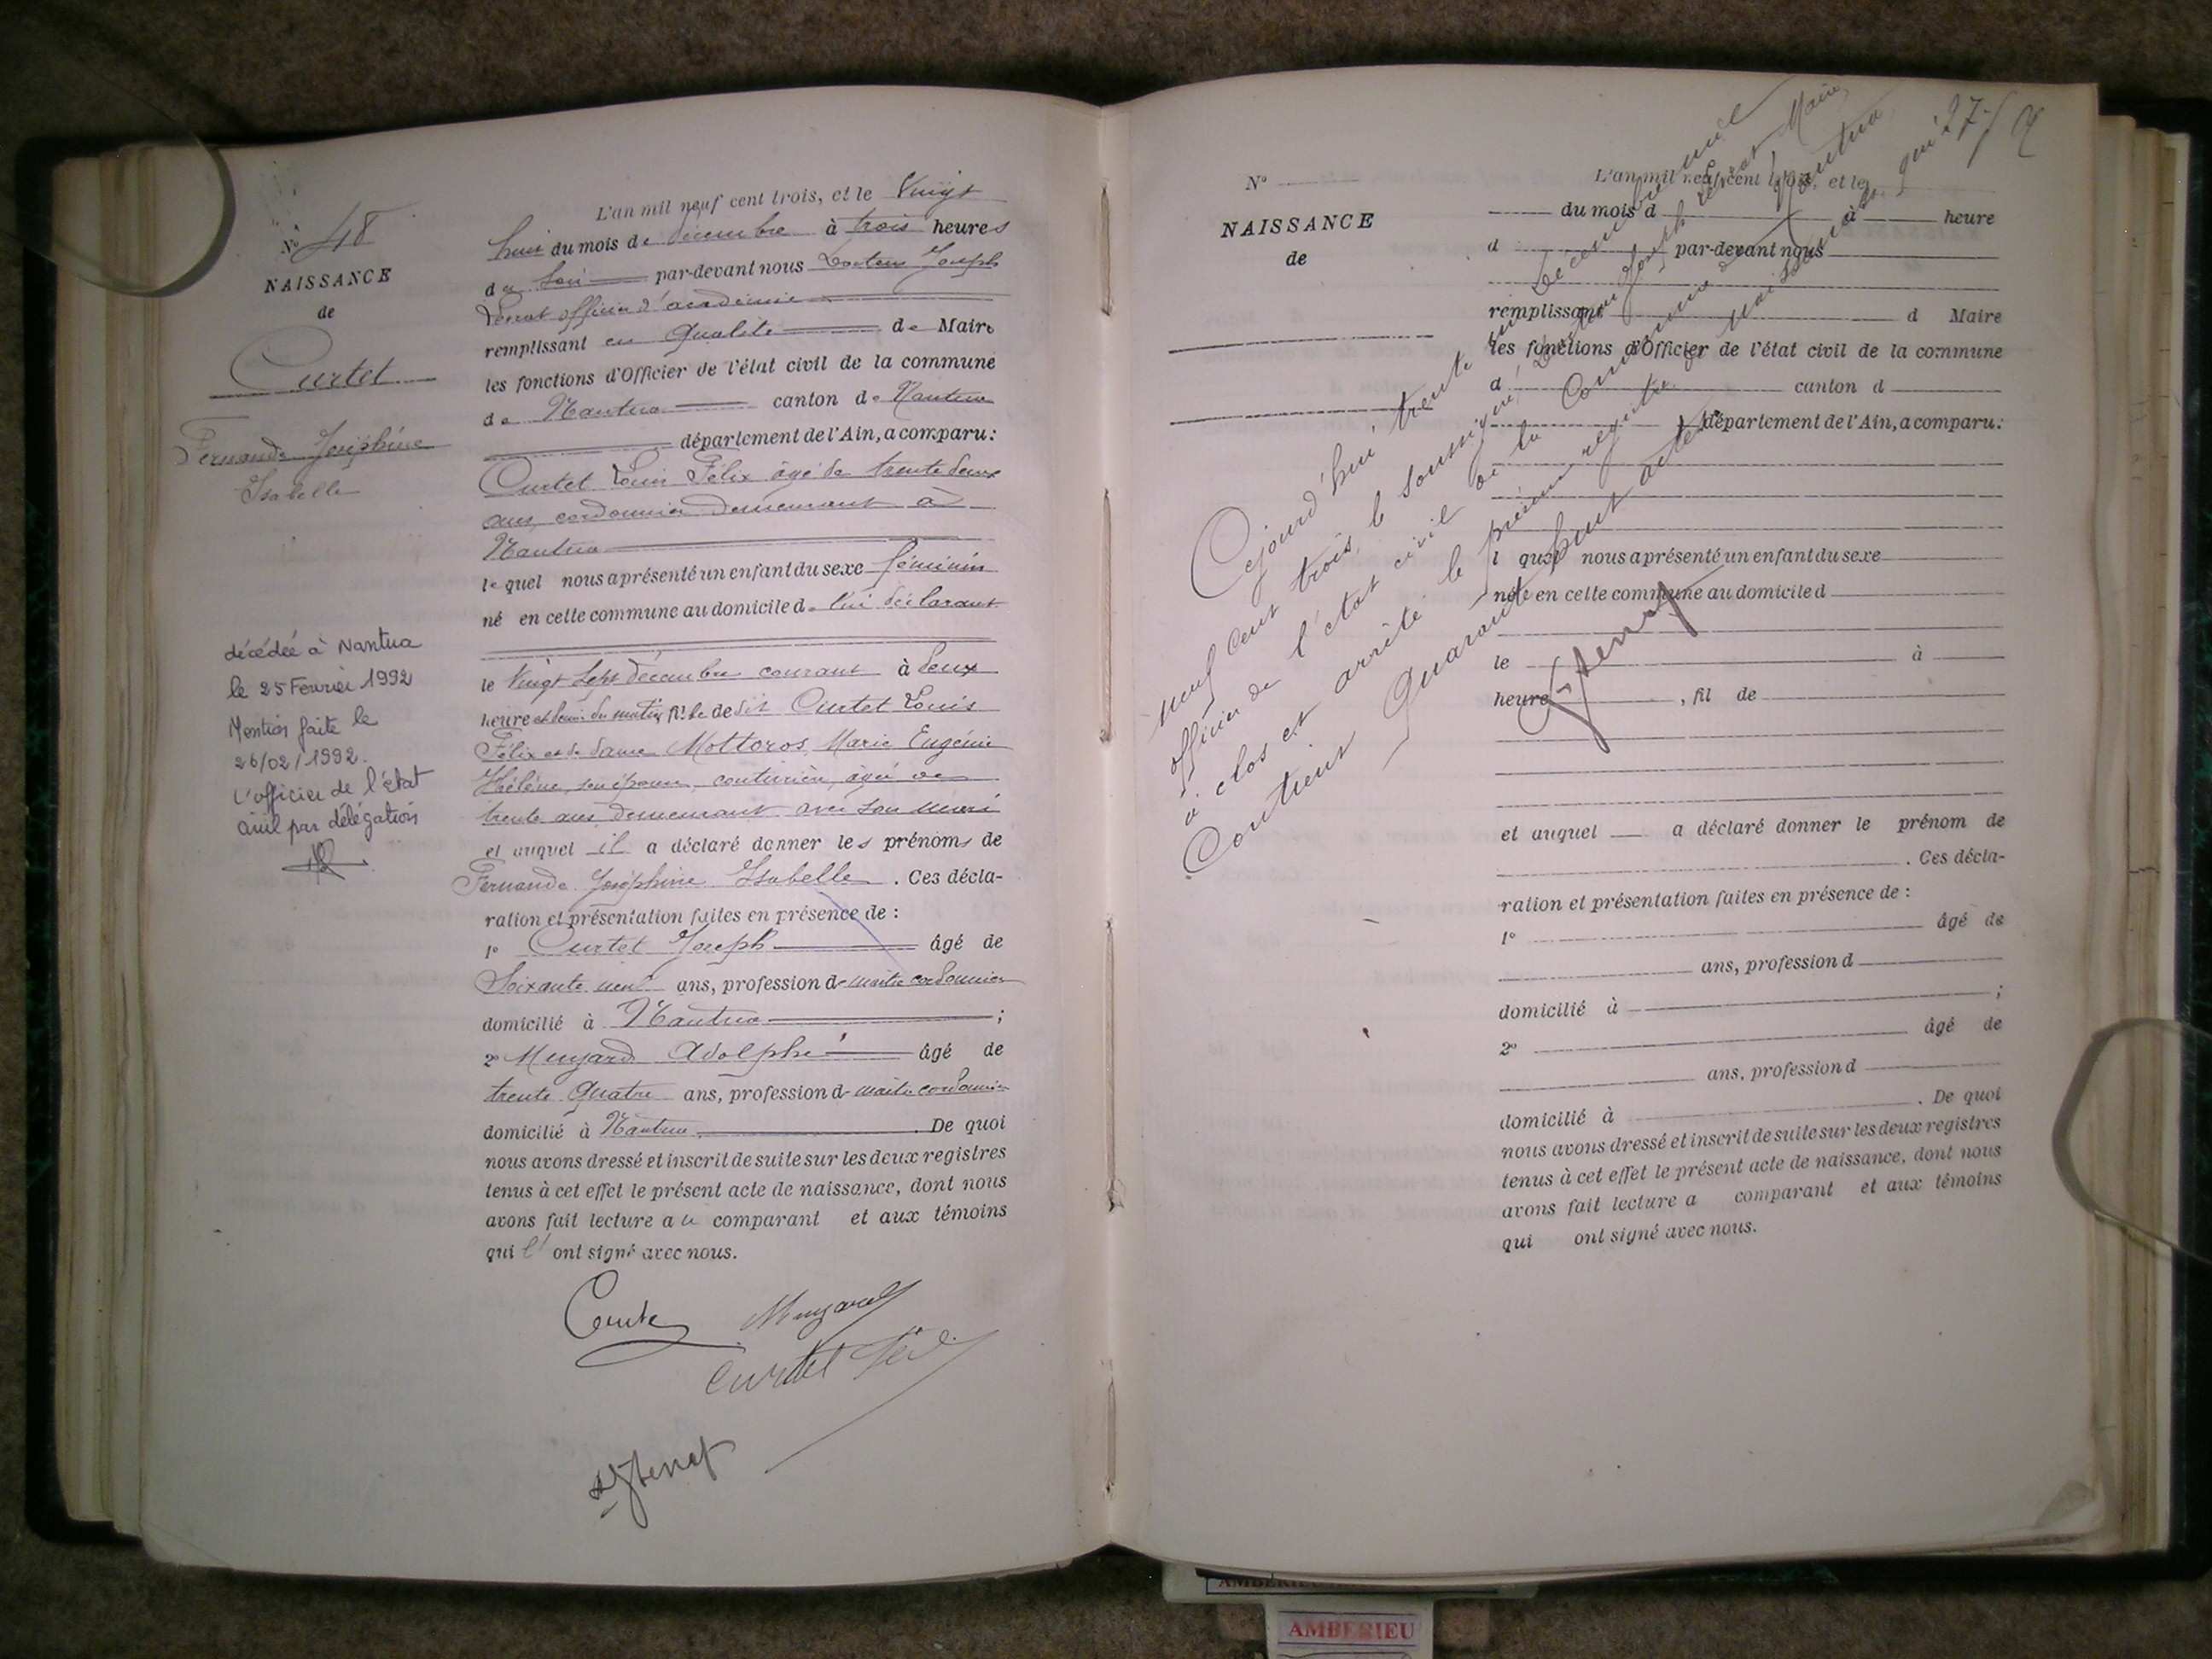 Nº 48
NAISSANCE
de
Curtet
Fernande Joséphine
Isabelle
décédée à Nantua
le 25 Fevrier 1992
Mention faite le
26/02/1992.
L'officier de l'état
civil par délégation
L'an mil neuf cent trois, et le Vingt
huit du mois de décembre à trois heures
du soir par-devant nous Docteur Joseph
officier d'académie
remplissant en qualité de Maire
les fonctions d'Officier de l'état civil de la commune
de Nantua canton de Nantua
département de l'Ain, a comparu:
Curtet Louis Félix âgé de trente deux
ans, cordonnier demeurant à
Nantua
lequel nous a présenté un enfant du sexe féminin
né en cette commune au domicile de lui déclarant
le Vingt Sept décembre courant à deux
heures et demie du matin fille de dit Curtet Louis
Félix et de dame Mottoros Marie Eugénie
Hélène, son épouse, couturière, âgée de
trente ans demeurant avec son mari
et auquel il a déclaré donner les prénoms de
Fernande Joséphine Isabelle. Ces décla-
ration et présentation faites en présence de :
1º Curtet Joseph âgé de
Soixante neuf ans, profession de maître cordonnier
domicilié à Nantua ;
2º Muzard Adolphe âgé de
trente quatre ans, profession de maître cordonnier
domicilié à Nantua. De quoi
nous avons dressé et inscrit de suite sur les deux registres
tenus à cet effet le présent acte de naissance, dont nous
avons fait lecture au comparant et aux témoins
qui l' ont signé avec nous.
Muzard
Curtet Félix
Nº
NAISSANCE
de
L'an mil neuf cent trois, et le
du mois d à heure
d par-devant nous
remplissant d Maire
les fonctions d'Officier de l'état civil de la commune
d canton d
département de l'Ain, a comparu:
l quel nous a présenté un enfant du sexe
né en cette commune au domicile d
le à
heure , fil de
et auquel a déclaré donner le prénom de
. Ces décla-
ration et présentation faites en présence de :
1º âgé de
ans, profession d
domicilié à ;
2º âgé de
ans, profession d
domicilié à . De quoi
nous avons dressé et inscrit de suite sur les deux registres
tenus à cet effet le présent acte de naissance, dont nous
avons fait lecture a comparant et aux témoins
qui ont signé avec nous.
Cejourd'hui trente un Décembre mil
neuf cent trois, le soussigné, Docteur Joseph Maire
officier de l'état civil de la Commune de Nantua
a clos et arrêté le présent registre de naissances qui
Contient Quarante huit actes
AMBERIEU